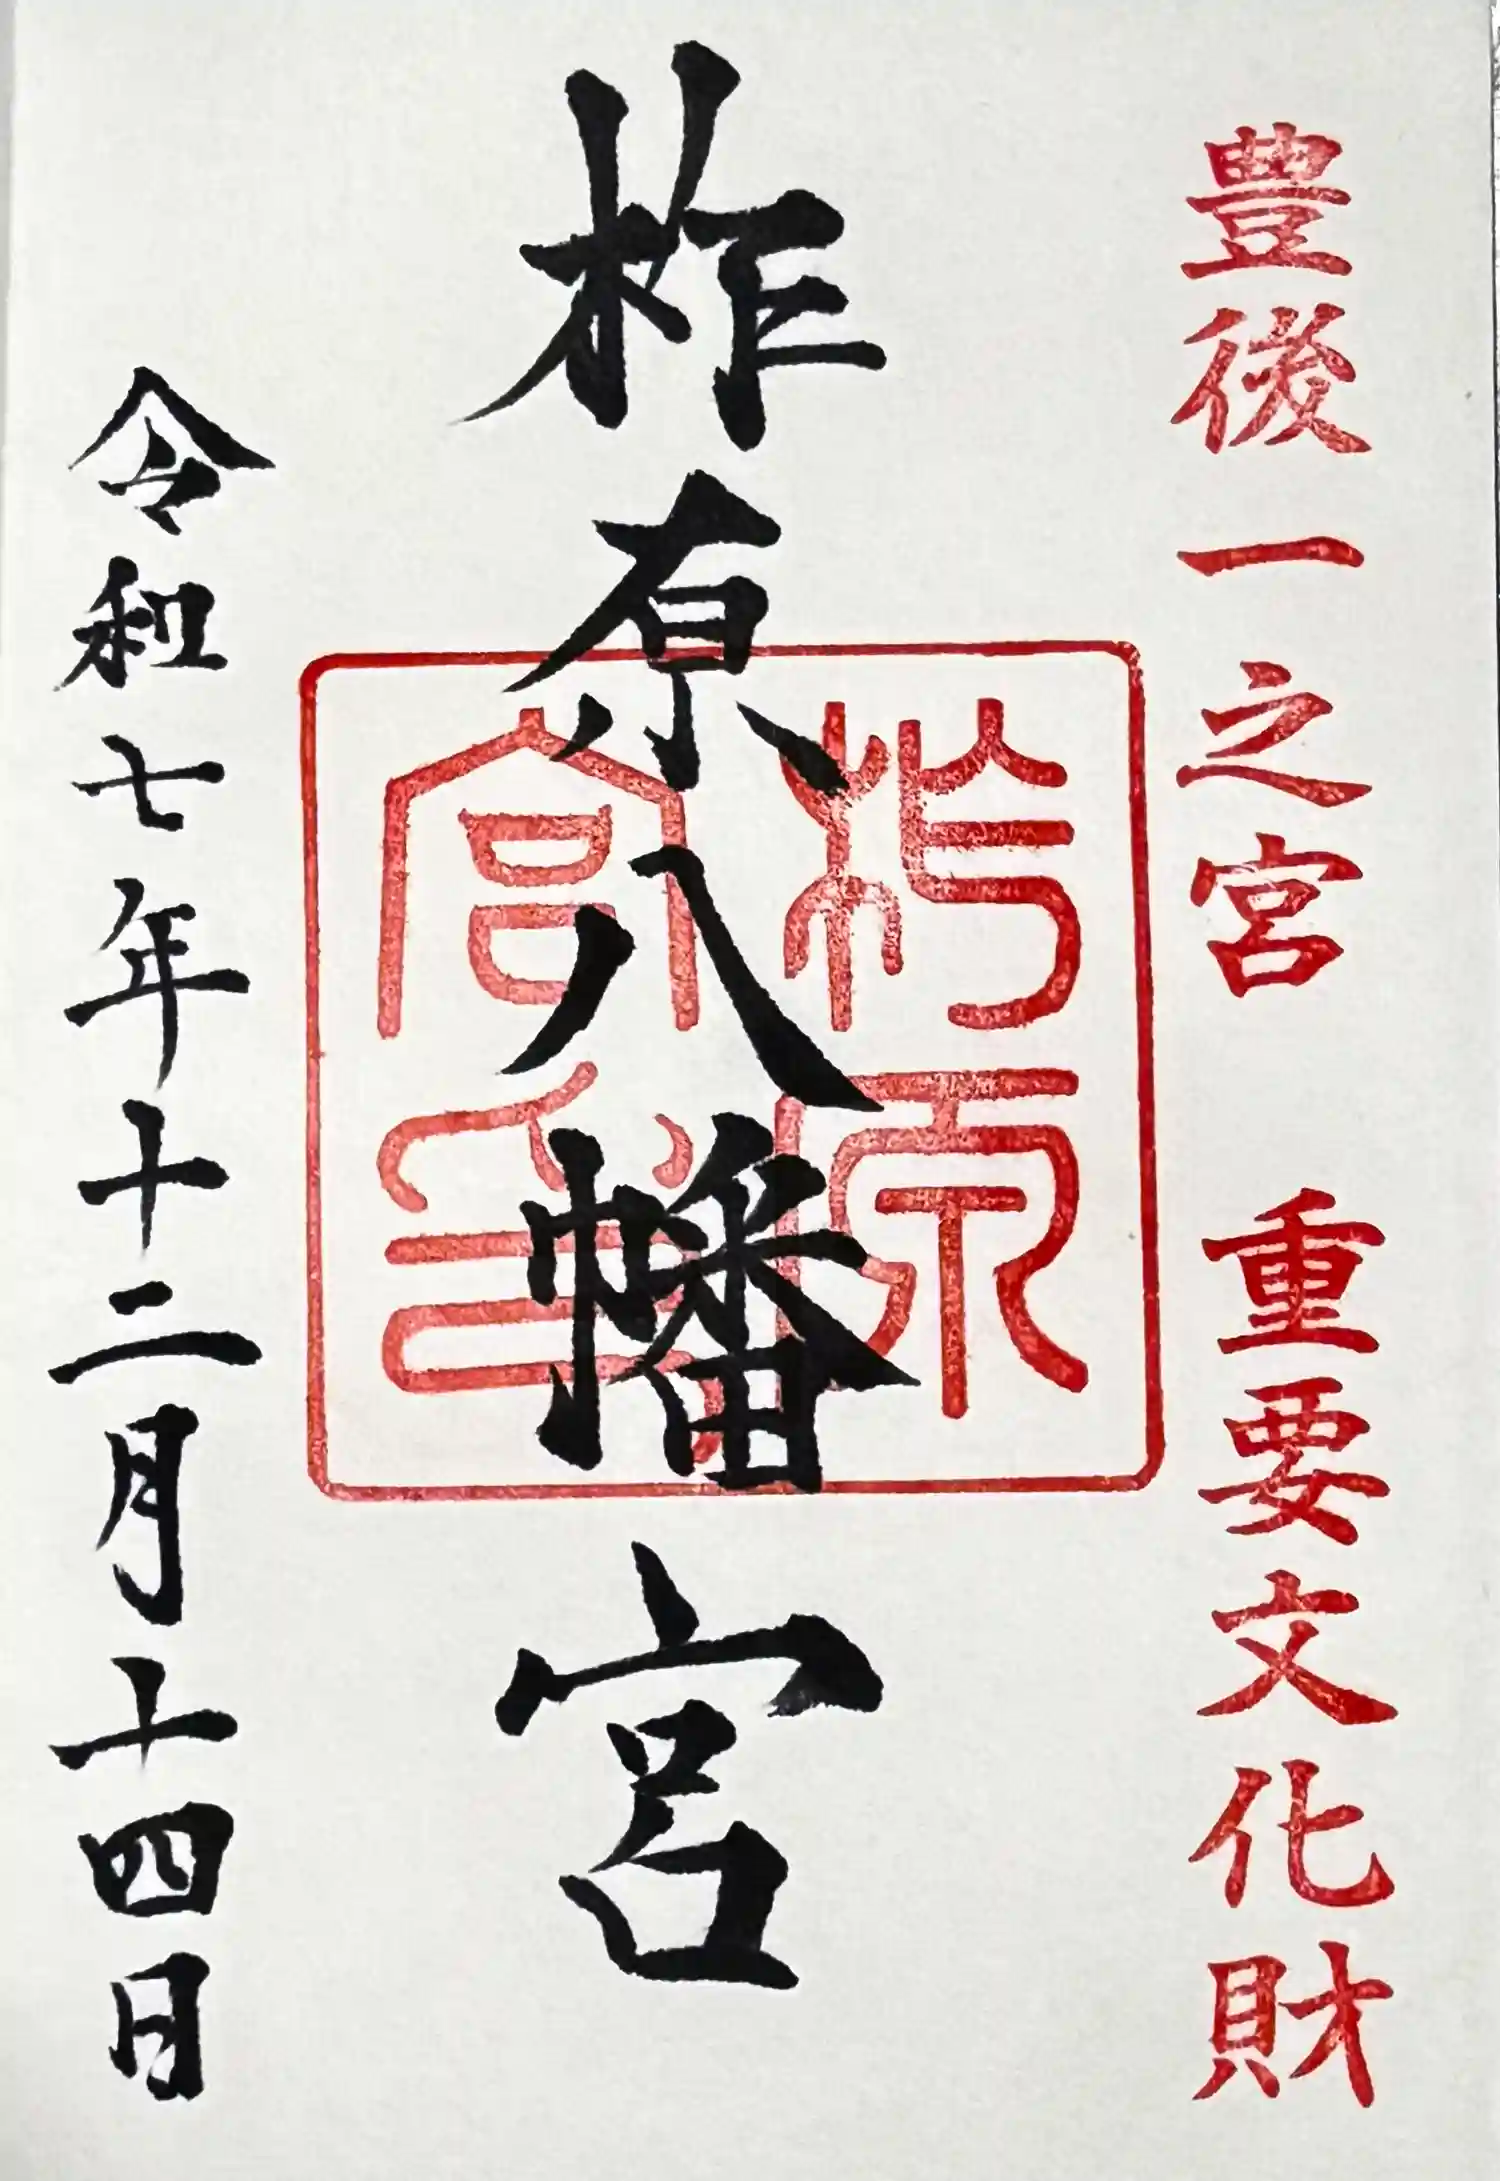 豊後一之宮　重要文化財
柞原八幡宮
令和七年十二月十四日